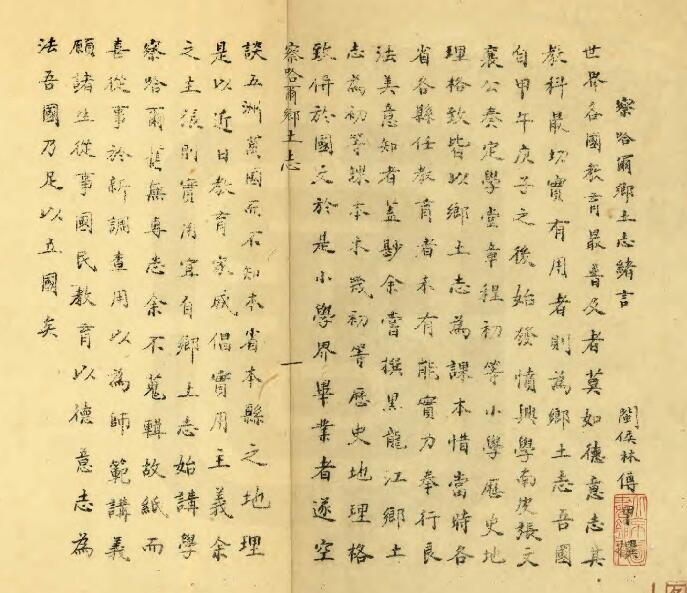 察哈爾鄉土志緒言
閩侯林傳甲撰
世界各國教育最普及者莫如德意志其
教科最切實有用者則為鄉土志吾國
自甲午庚子之後始發憤興學南皮張文
襄公奏定學堂章程初等小學歷史地
理格致皆以鄉土志為課本惜當時各
省各縣任教育者未有能實力奉行良
法美意知者蓋尟余嘗撰黑龍江鄉土
志為初等課本未幾初等歷史地理格
致併於國文於是小學界畢業者遂空
察哈爾鄉土志
一
談五洲萬國而不知本省本縣之地理
是以近日教育家咸倡實用主義余
之主張則實用宜自鄉土志始講學
察哈爾舊無專志余不蒐輯故紙而
喜從事於新調查用以為師範講義
願諸生從事國民教育以德意志為
法吾國乃足以立國矣